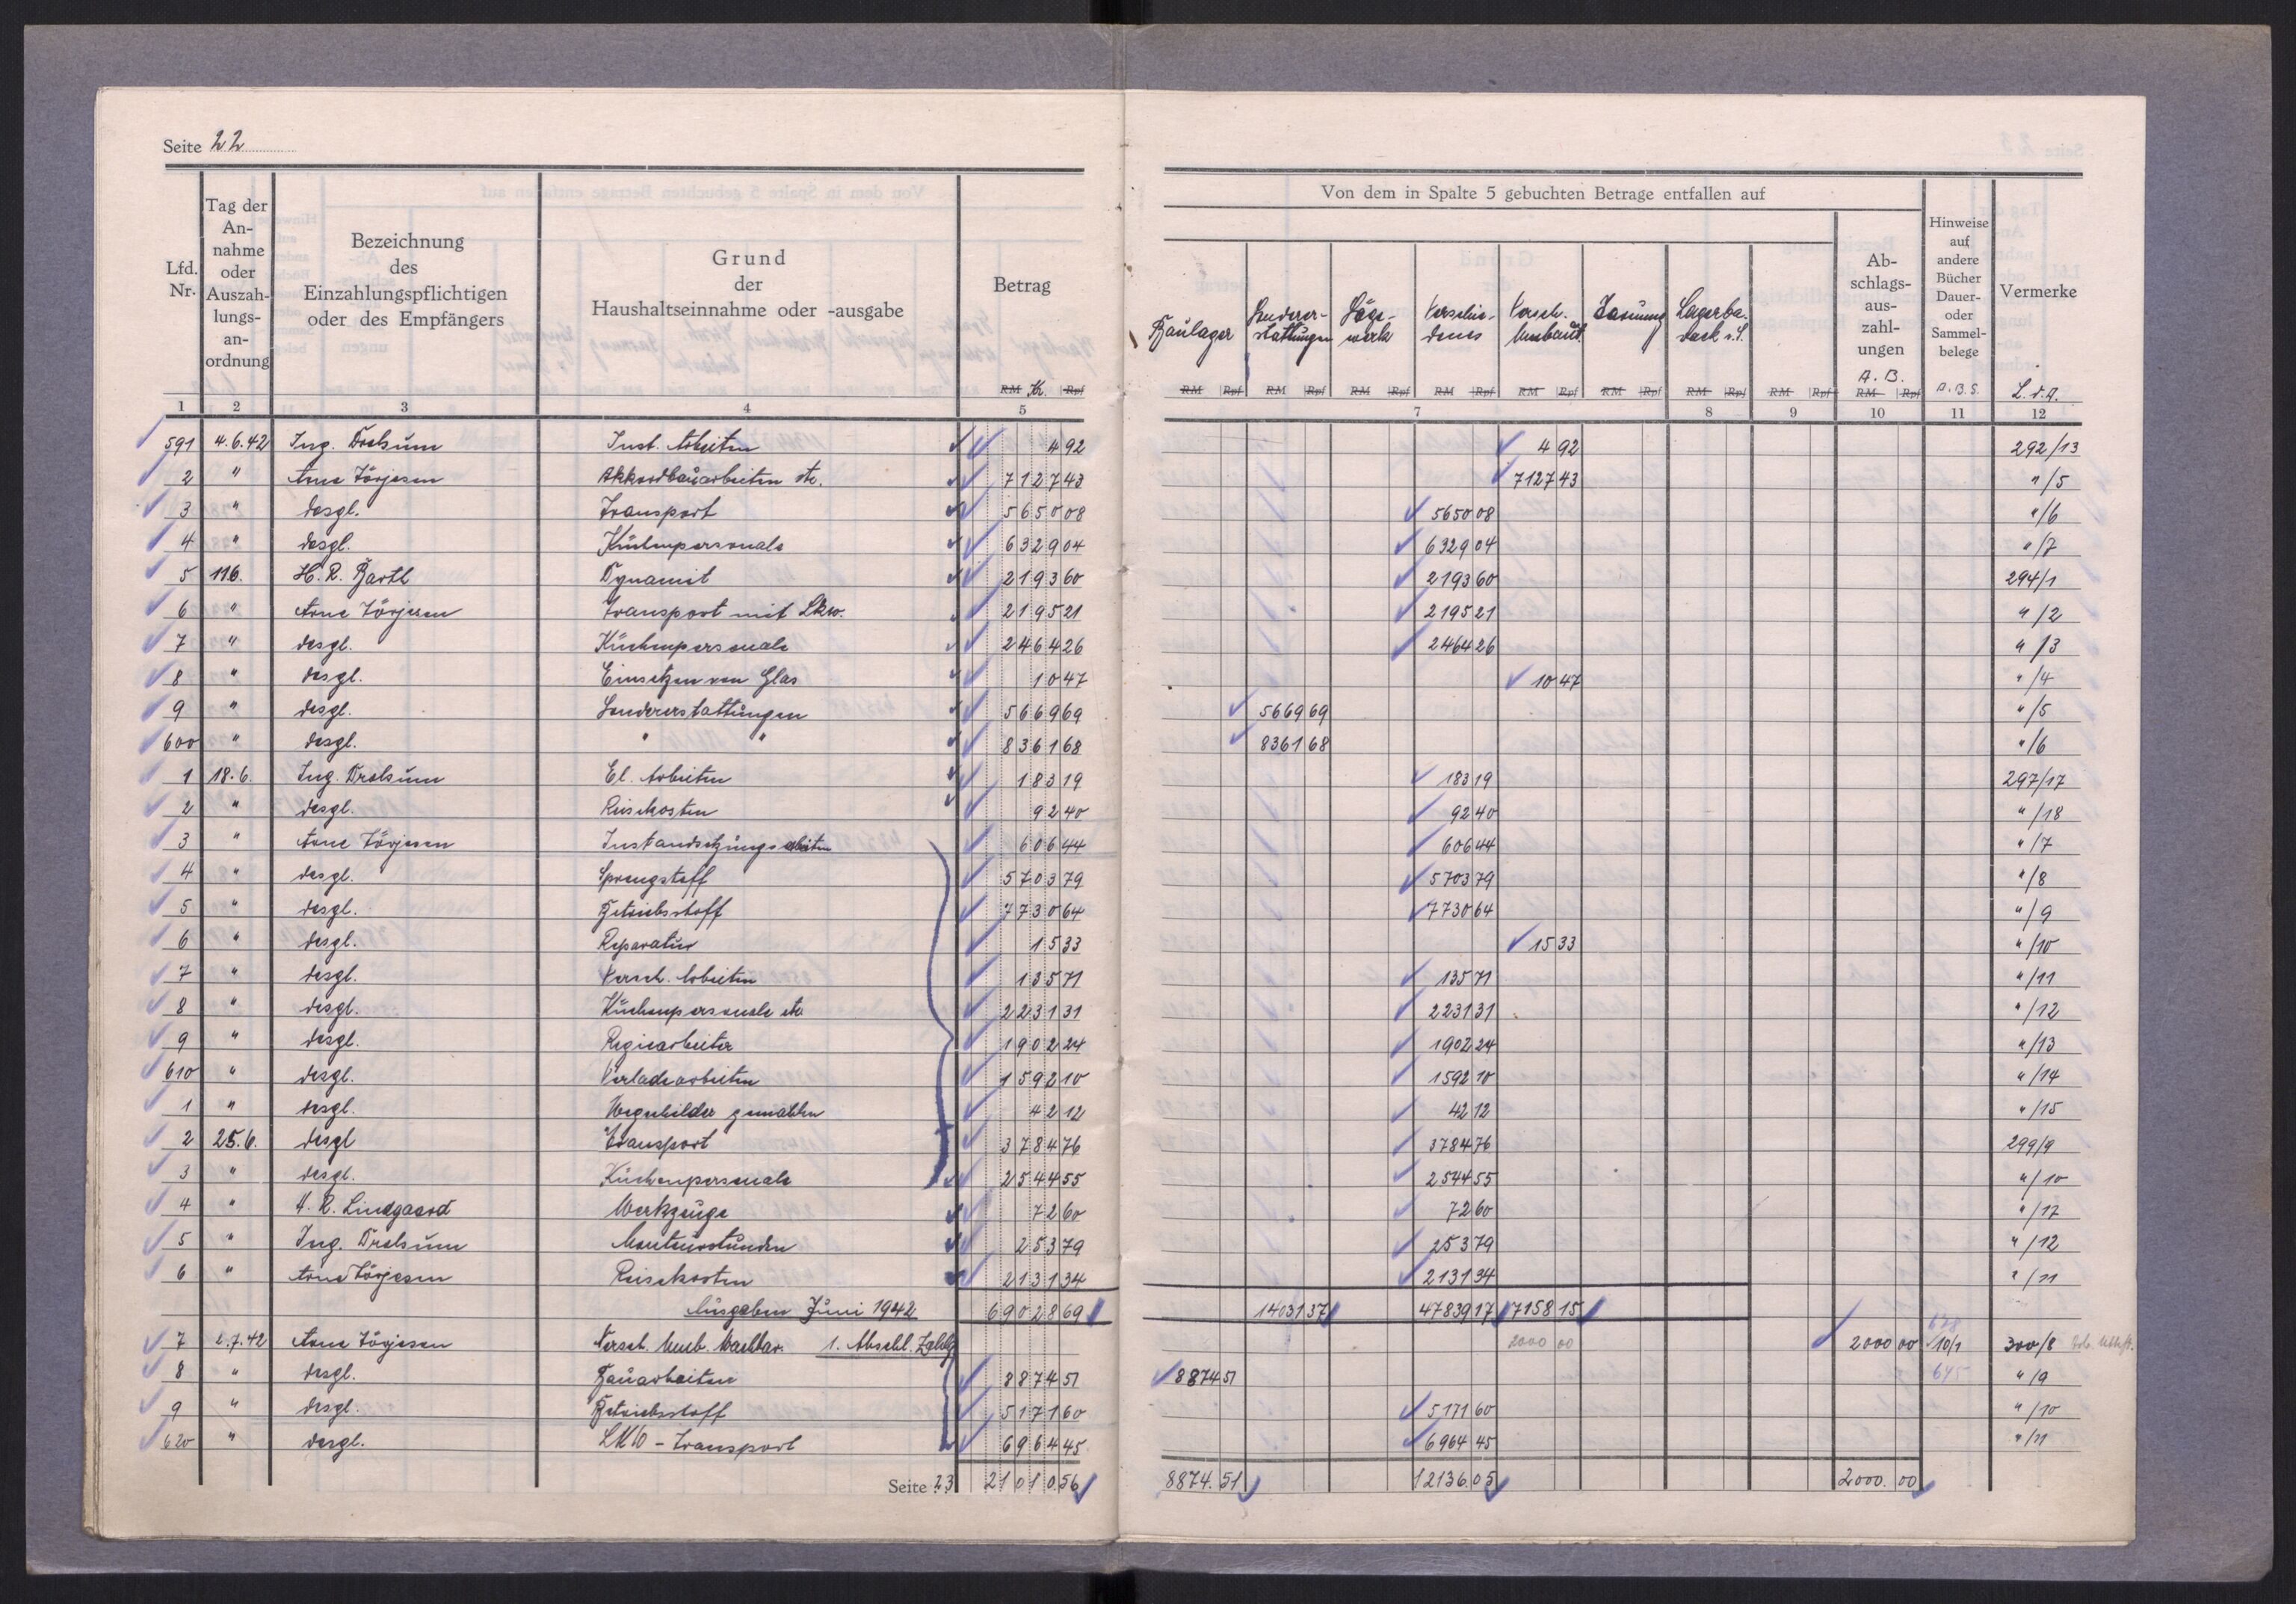 Seite 22
Lfd. Nr. | Tag der Annahme oder Auszahlungsanordnung | Bezeichnung des Einzahlungspflichtigen oder des Empfängers | Grund der Haushaltseinnahme oder -ausgabe | Betrag
RM Kr. Rpf
1 2 3 4 5
Von dem in Spalte 5 gebuchten Betrage entfallen auf
Baulager | Sondererstattungen | Sägewerk | Verschiedenes | Versch. Umbaut. | Tarnung | Lagerba. | Abschlagsauszahlungen A.B. | Hinweise auf andere Bücher Dauer- oder Sammelbelege A.B.S. | Vermerke L.d.A.
RM Rpf RM Rpf RM Rpf RM Rpf RM Rpf RM Rpf RM Rpf RM Rpf RM Rpf
7 8 9 10 11 12
591 4.6.42 Ing. Drolsum Inst. Arbeiten 4 92 4 92 292/13
2 " Arne Törjesen Akkordbauarbeiten etc. 7127 43 7127 43 "/5
3 " desgl. Transport 5650 08 5650 08 "/6
4 " desgl. Küchenpersonale 6329 04 6329 04 "/7
5 11.6. H.R. Bartl Dynamit 2193 60 2193 60 294/1
6 " Arne Törjesen Transport mit Lkw. 2195 21 2195 21 "/2
7 " desgl. Küchenpersonale 2464 26 2464 26 "/3
8 " desgl. Einsetzen von Glas 10 47 10 47 "/4
9 " desgl. Sondererstattungen 5669 69 5669 69 "/5
600 " desgl. " " 8361 68 8361 68 "/6
1 18.6. Ing. Drolsum El. Arbeiten 183 19 183 19 297/17
2 " desgl. Reisekosten 92 40 92 40 "/18
3 " Arne Törjesen Instandsetzungsarbeiten 606 44 606 44 "/7
4 " desgl. Sprengstoff 5703 79 5703 79 "/8
5 " desgl. Betriebsstoff 7730 64 7730 64 "/9
6 " desgl. Reparatur 15 33 15 33 "/10
7 " desgl. Versch. Arbeiten 135 71 135 71 "/11
8 " desgl. Küchenpersonale etc. 2231 31 2231 31 "/12
9 " desgl. Regiearbeiter 1902 24 1902 24 "/13
610 " desgl. Verladearbeiten 1592 10 1592 10 "/14
1 " desgl. 42 12 42 12 "/15
2 25.6. desgl Transport 3784 76 3784 76 299/9
3 " desgl. Küchenpersonale 2544 55 2544 55 "/10
4 " A.R. Lindgaard Werkzeuge 72 60 72 60 "/17
5 " Ing. Drolsum Monteurstunden 253 79 253 79 "/12
6 " Arne Törjesen Reisekosten 2131 34 2131 34 "/11
Ausgaben Juni 1942 69028 69 14031 37 47839 17 7158 15
7 2.7.42 Arne Törjesen Versch. Umb. 1. Abschl. Zahlg 2000 00 2000 00 628 10/1 300/8
8 " desgl. Bauarbeiten 8874 51 8874 51 645 "/9
9 " desgl. Betriebsstoff 5171 60 5171 60 "/10
620 " desgl. LKW - Transport 6964 45 6964 45 "/11
Seite 23 21010.56 8874.51 12136.05 2000.00